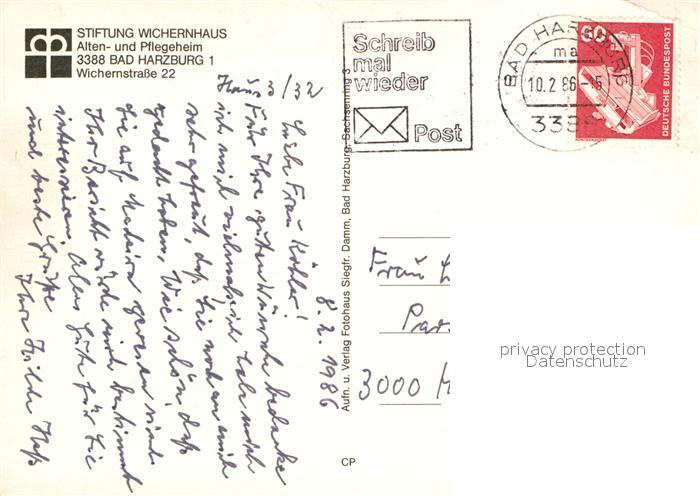 STIFTUNG WICHERNHAUS
Alten- und Pflegeheim
3388 BAD HARZBURG 1
Wichernstraße 22
Haus 3/32
8. 2. 1986
Liebe Frau Köhler!
Für Ihre guten Wünsche bedanke
ich mich vielmals. Ich habe mich
sehr gefreut, daß Sie noch an mich
gedacht haben. Wie schön, daß
Sie auf Madeira gewesen sind.
Ihr Bericht würde mich bestimmt
interessieren. Alles Gute für Sie
und beste Grüße
Ihre Hilde Heß
Aufn. u. Verlag Fotohaus Siegfr. Damm, Bad Harzburg, Sachsenring 3
CP
Schreib
mal
wieder
Post
BAD HARZBURG
ma
10.2.86-15
3388
60
DEUTSCHE BUNDESPOST
Frau
3000 H
privacy protection
Datenschutz